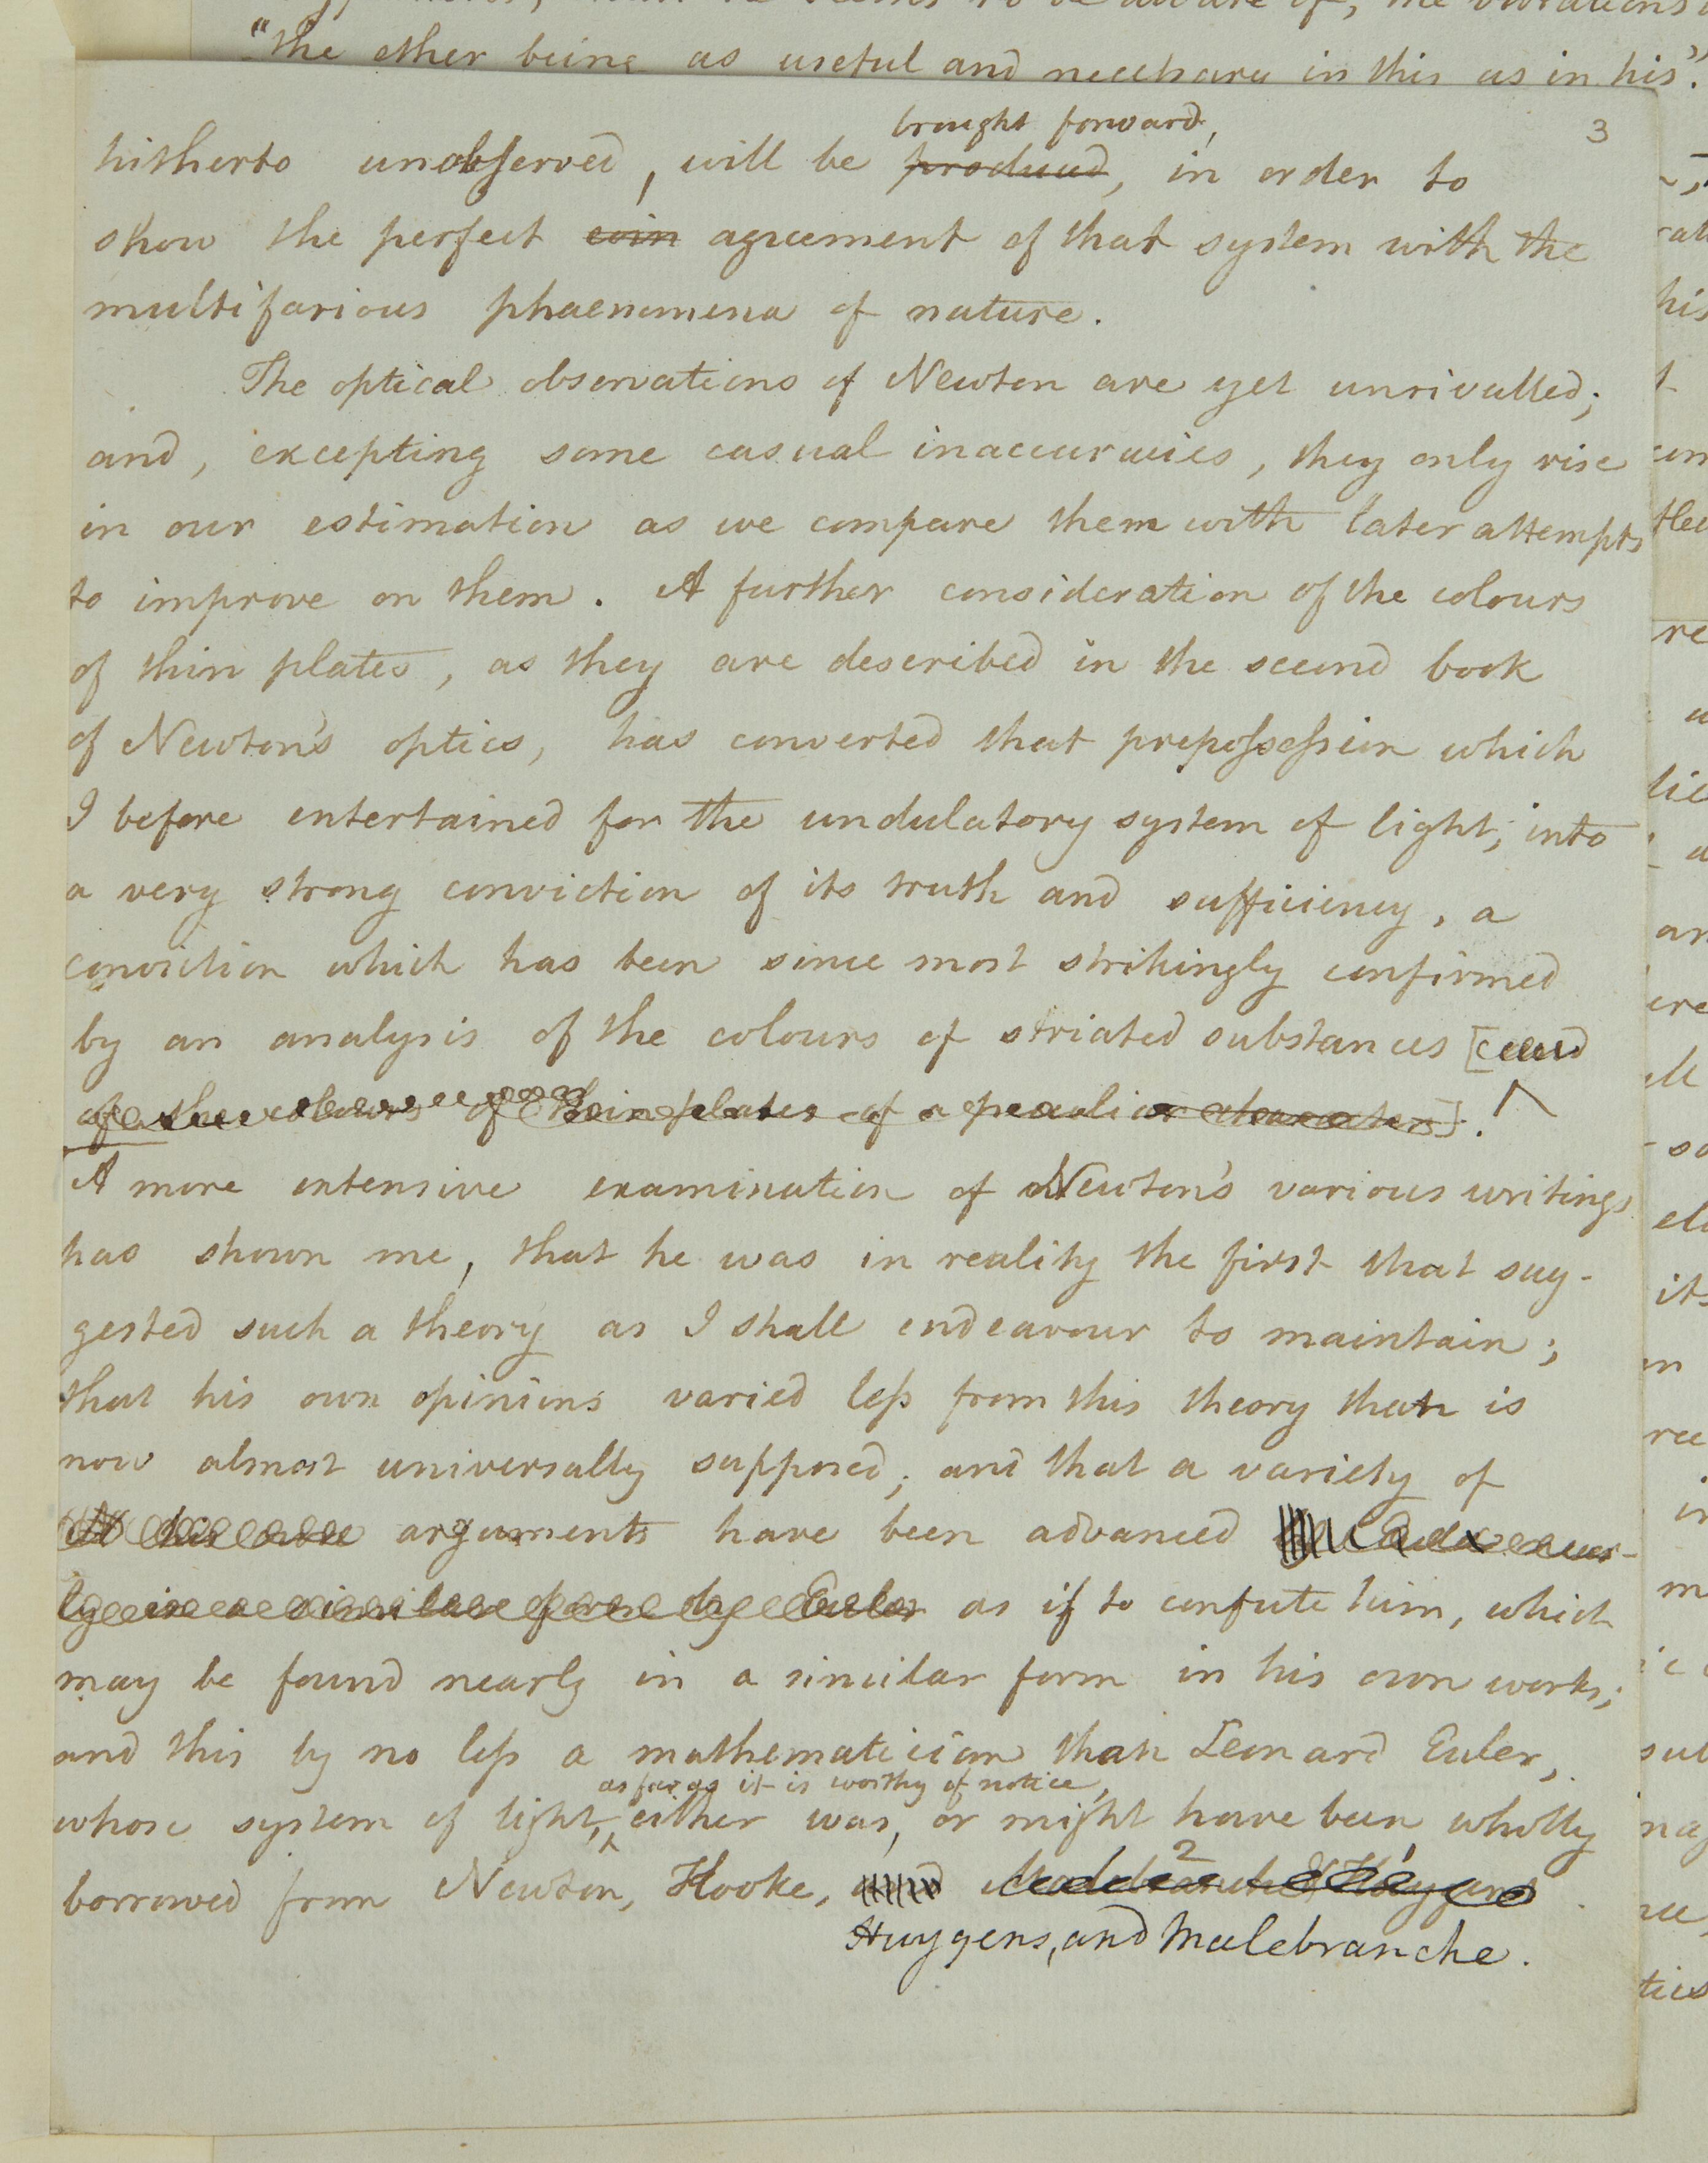 "the ether being as useful and necessary in this as in his".
3
brought forward,
hitherto unobserved, will be produced, in order to
show the perfect coin agreement of that system with the
multifarious phaenomena of nature.
The optical observations of Newton are yet unrivalled;
and, excepting some casual inaccuracies, they only rise
in our estimation as we compare them with later attempts
to improve on them. A further consideration of the colours
of thin plates, as they are described in the second book
of Newton's optics, has converted that prepossession which
I before entertained for the undulatory system of light, into
a very strong conviction of its truth and sufficiency, a
conviction which has been since most strikingly confirmed
by an analysis of the colours of striated substances [and
of the colours of thin plates of a peculiar character].
A more extensive examination of Newton's various writings
has shown me, that he was in reality the first that sug-
gested such a theory as I shall endeavour to maintain;
that his own opinions varied less from this theory than is
now almost universally supposed; and that a variety of
his own arguments have been advanced
in a similar form by Euler as if to confute him, which
may be found nearly in a similar form in his own works;
and this by no less a mathematician than Leonard Euler,
as far as it is worthy of notice,
whose system of light, either was, or might have been, wholly
borrowed from Newton, Hooke, and Malebranche & Huygens
2 1
Huygens, and Malebranche.